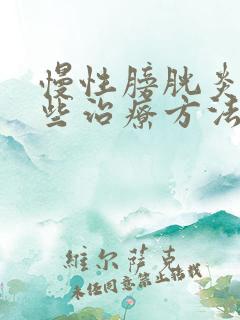 慢性膀胱炎
些治療方法
維尔薩克
未经同意禁止转载